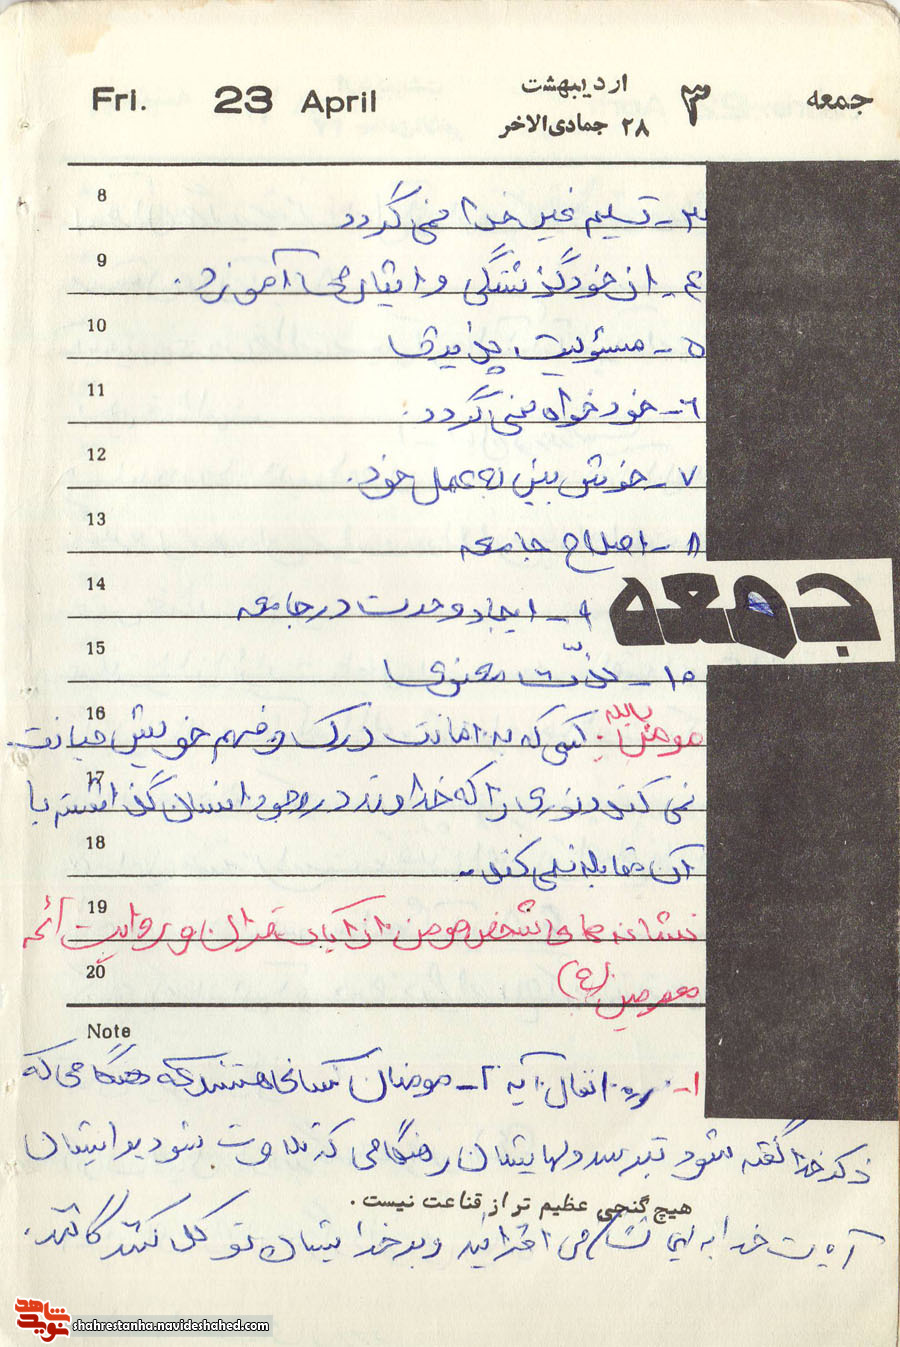 جمعه ۳ اردیبهشت
۲۸ جمادی‌الاخر
Fri. 23 April
8
۳- تسلیم غیر خدا نمی گردد
9
۴- از خودگذشتگی و ایثار را آموزد.
10
۵- مسئولیت پذیری
11
۶- خودخواه نمی گردد.
12
۷- خوش بین به عمل خود.
13
۸- اصلاح جامعه
14
۹- ایجاد وحدت در جامعه
جمعه
15
۱۰- لذّت معنوی
16
مومن بالله: کسی که به امانت درک و فهم خویش خیانت
17
نمی کند و نوری را که خداوند در وجود انسان گذاشته با
18
آن مقابله نمی کند.
19
نشانه های شخص مومن از آیات قرآن و روایت آئمه
20
معصومین (ع)
Note
۱- سوره انفال آیه ۲- مومنان کسانی هستند که هنگامی که
ذکر خدا گفته شود بترسد دلهایشان و هنگامی که تلاوت شود بر ایشان
هیچ گنجی عظیم تر از قناعت نیست.
آیات خدا به ایمانشان می افزاید و بر خدایشان توکل کنند
نوید شاهد
shahrestanha.navideshahed.com